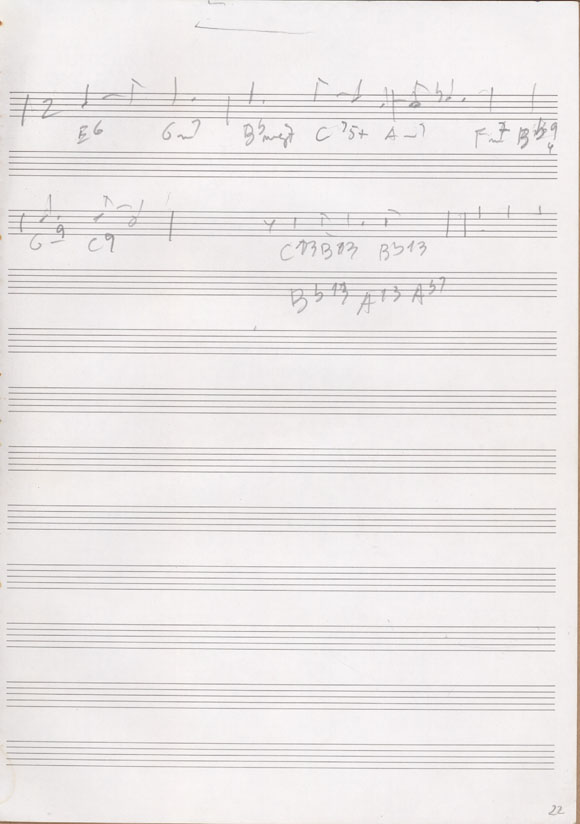 2
E6 G-7 Bbmaj7 C75+ A-7 F-7
G-9 C9 C13 B13 Bb13
Bb13 A13 Ab7
22